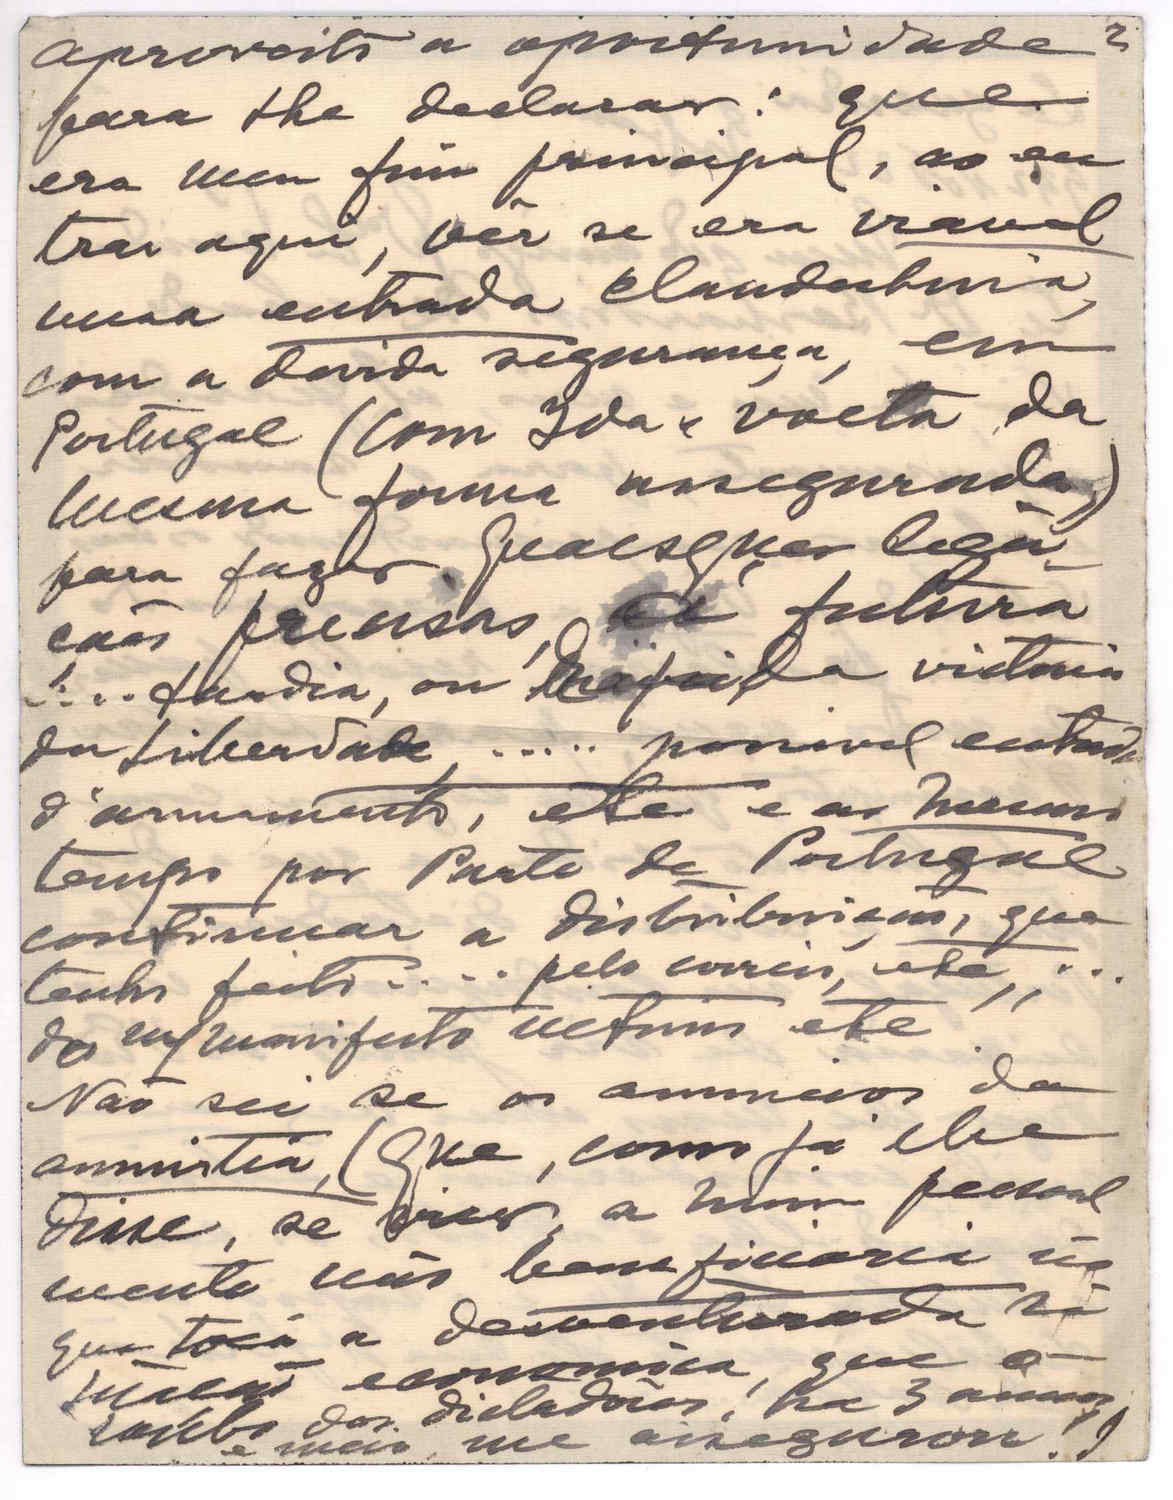 aproveito a oportunidade 2
para lhe declarar: que
era meu fim principal, ao en
trar aqui, vêr se era viavel
uma entrada clandestina,
com a devida segurança, em
Portugal (com Ida e volta da
mesma forma assegurada,)
para fazer Quaesquer liga-
ções precisas, á futura
.... tardia, ou rapida victoria
da Liberdade, ..... possivel entrada
d'armamento, etc e ao mesmo
tempo por Parte de Portugal
continuar a distribuição, que
tenho feito .... pelo correio, etc,, ...
do m/ manifesto ultimo etc
Não sei se os annuncios da
amnistia, (Que, como já lhe
disse, se vier, a mim pessoal
mente não beneficiaria no
que toca a desventurada si
tuação economica, que o
roubo das dictaduras, ha 3 annos
e meio, me assegurou!)